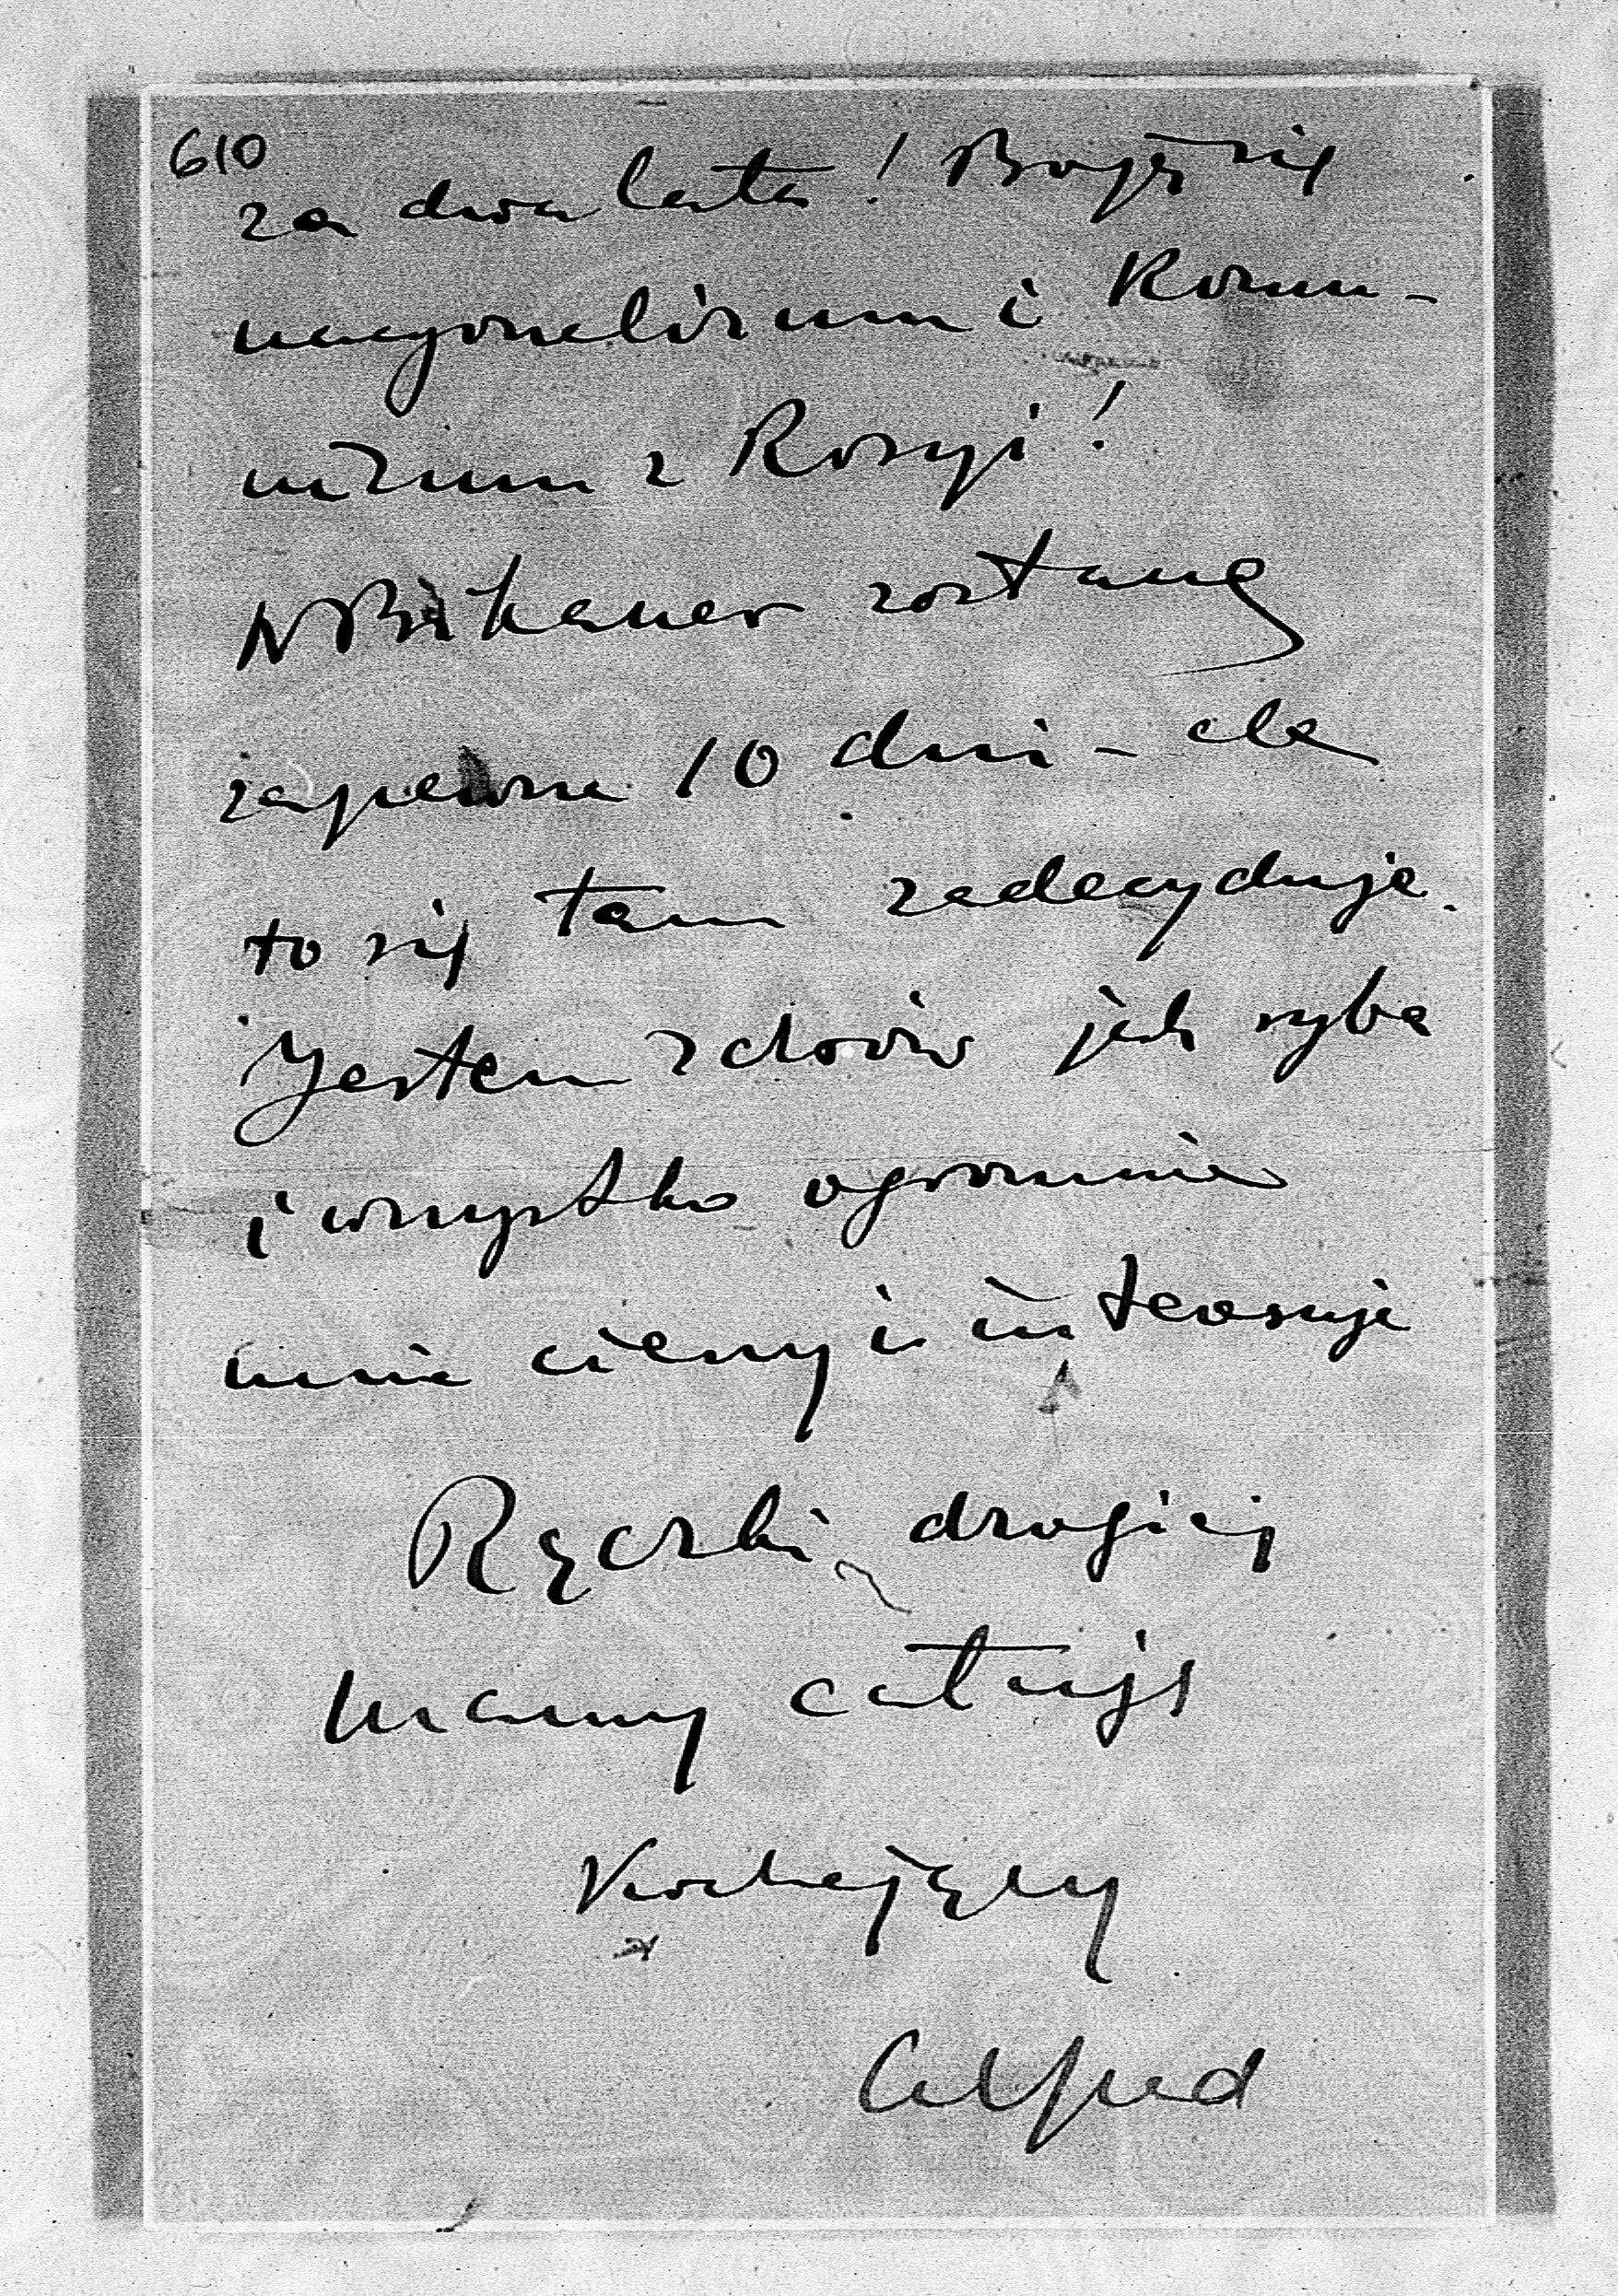 610
za dwa lata! Boją się
nacyonalizmu i Komu-
nizmu z Rosyi!
W Bikaner zostanę
zapewne 10 dni - ale
to się tam zadecyduje.
Jestem zdrów jak ryba
i wszystko ogromnie
mnie cieszy i interesuje
Rączki drogiej
Mamy całuję
Kochający
Alfred